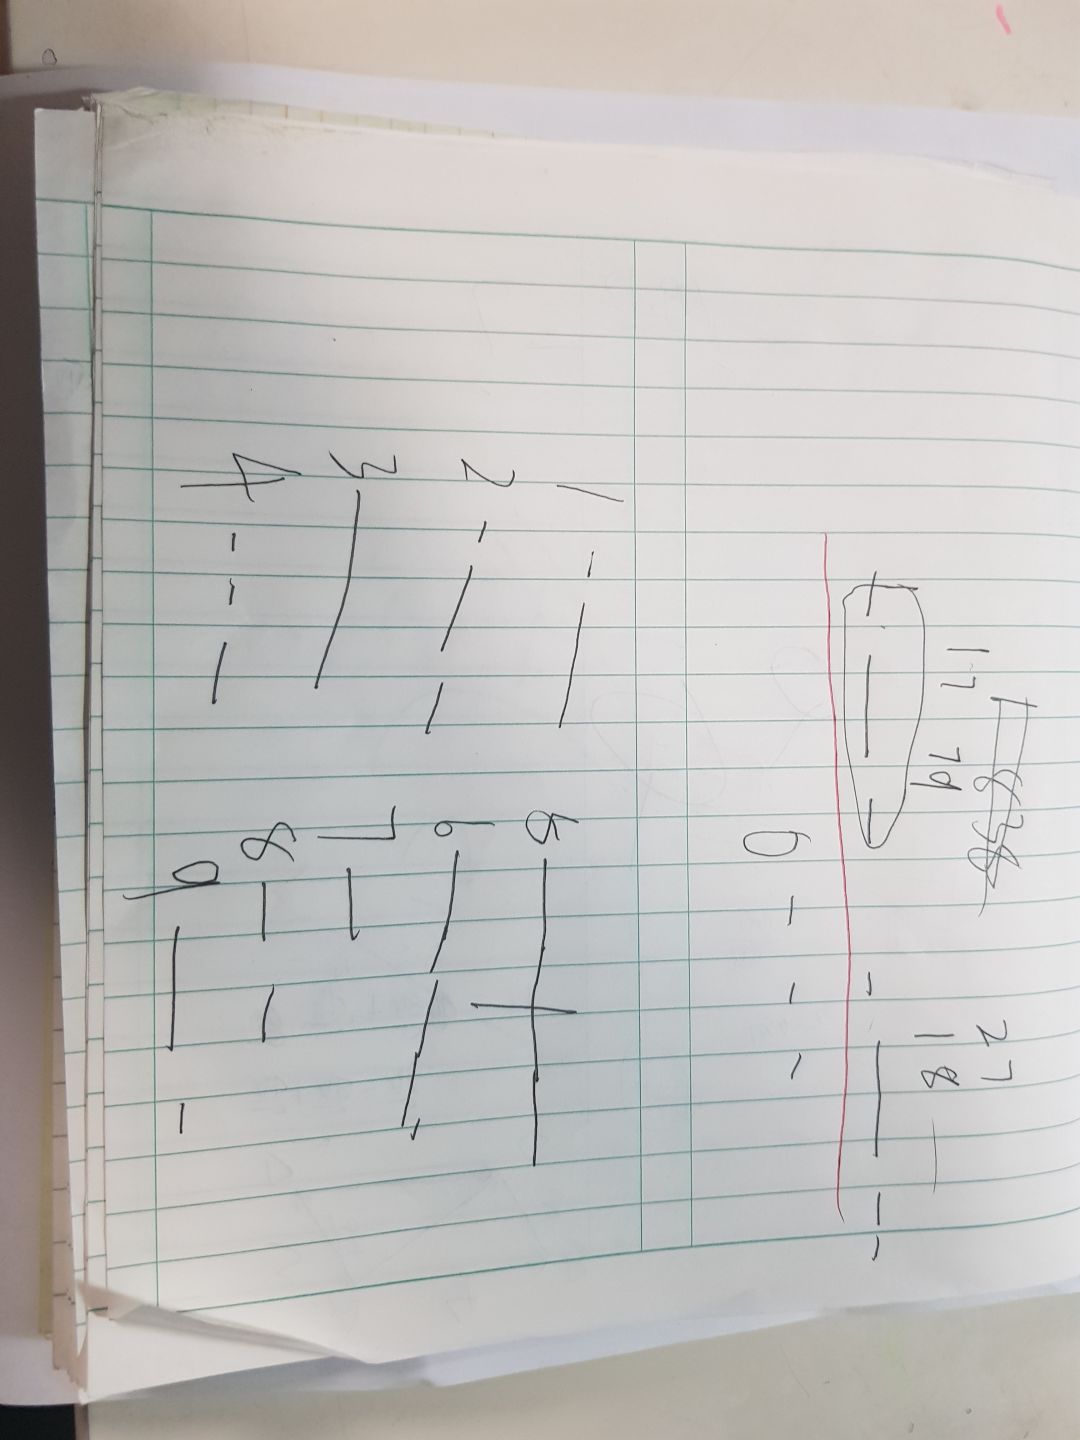 27
17
18 —
- — -    - — - -
0 - - -
1 - —    5 — —
2 - — -    6 — —
3 —    7 —
4 - - —    8 - -
9 — -